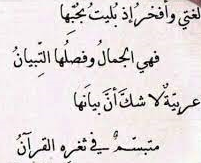 لغتي وأفخر إذ بُليتُ بحُبّها
فهي الجمالُ وفصلُها التِّبيانُ
عربيّةٌ لا شكّ أنَّ بيانَها
متبسّمٌ في ثغرِه القرآنُ